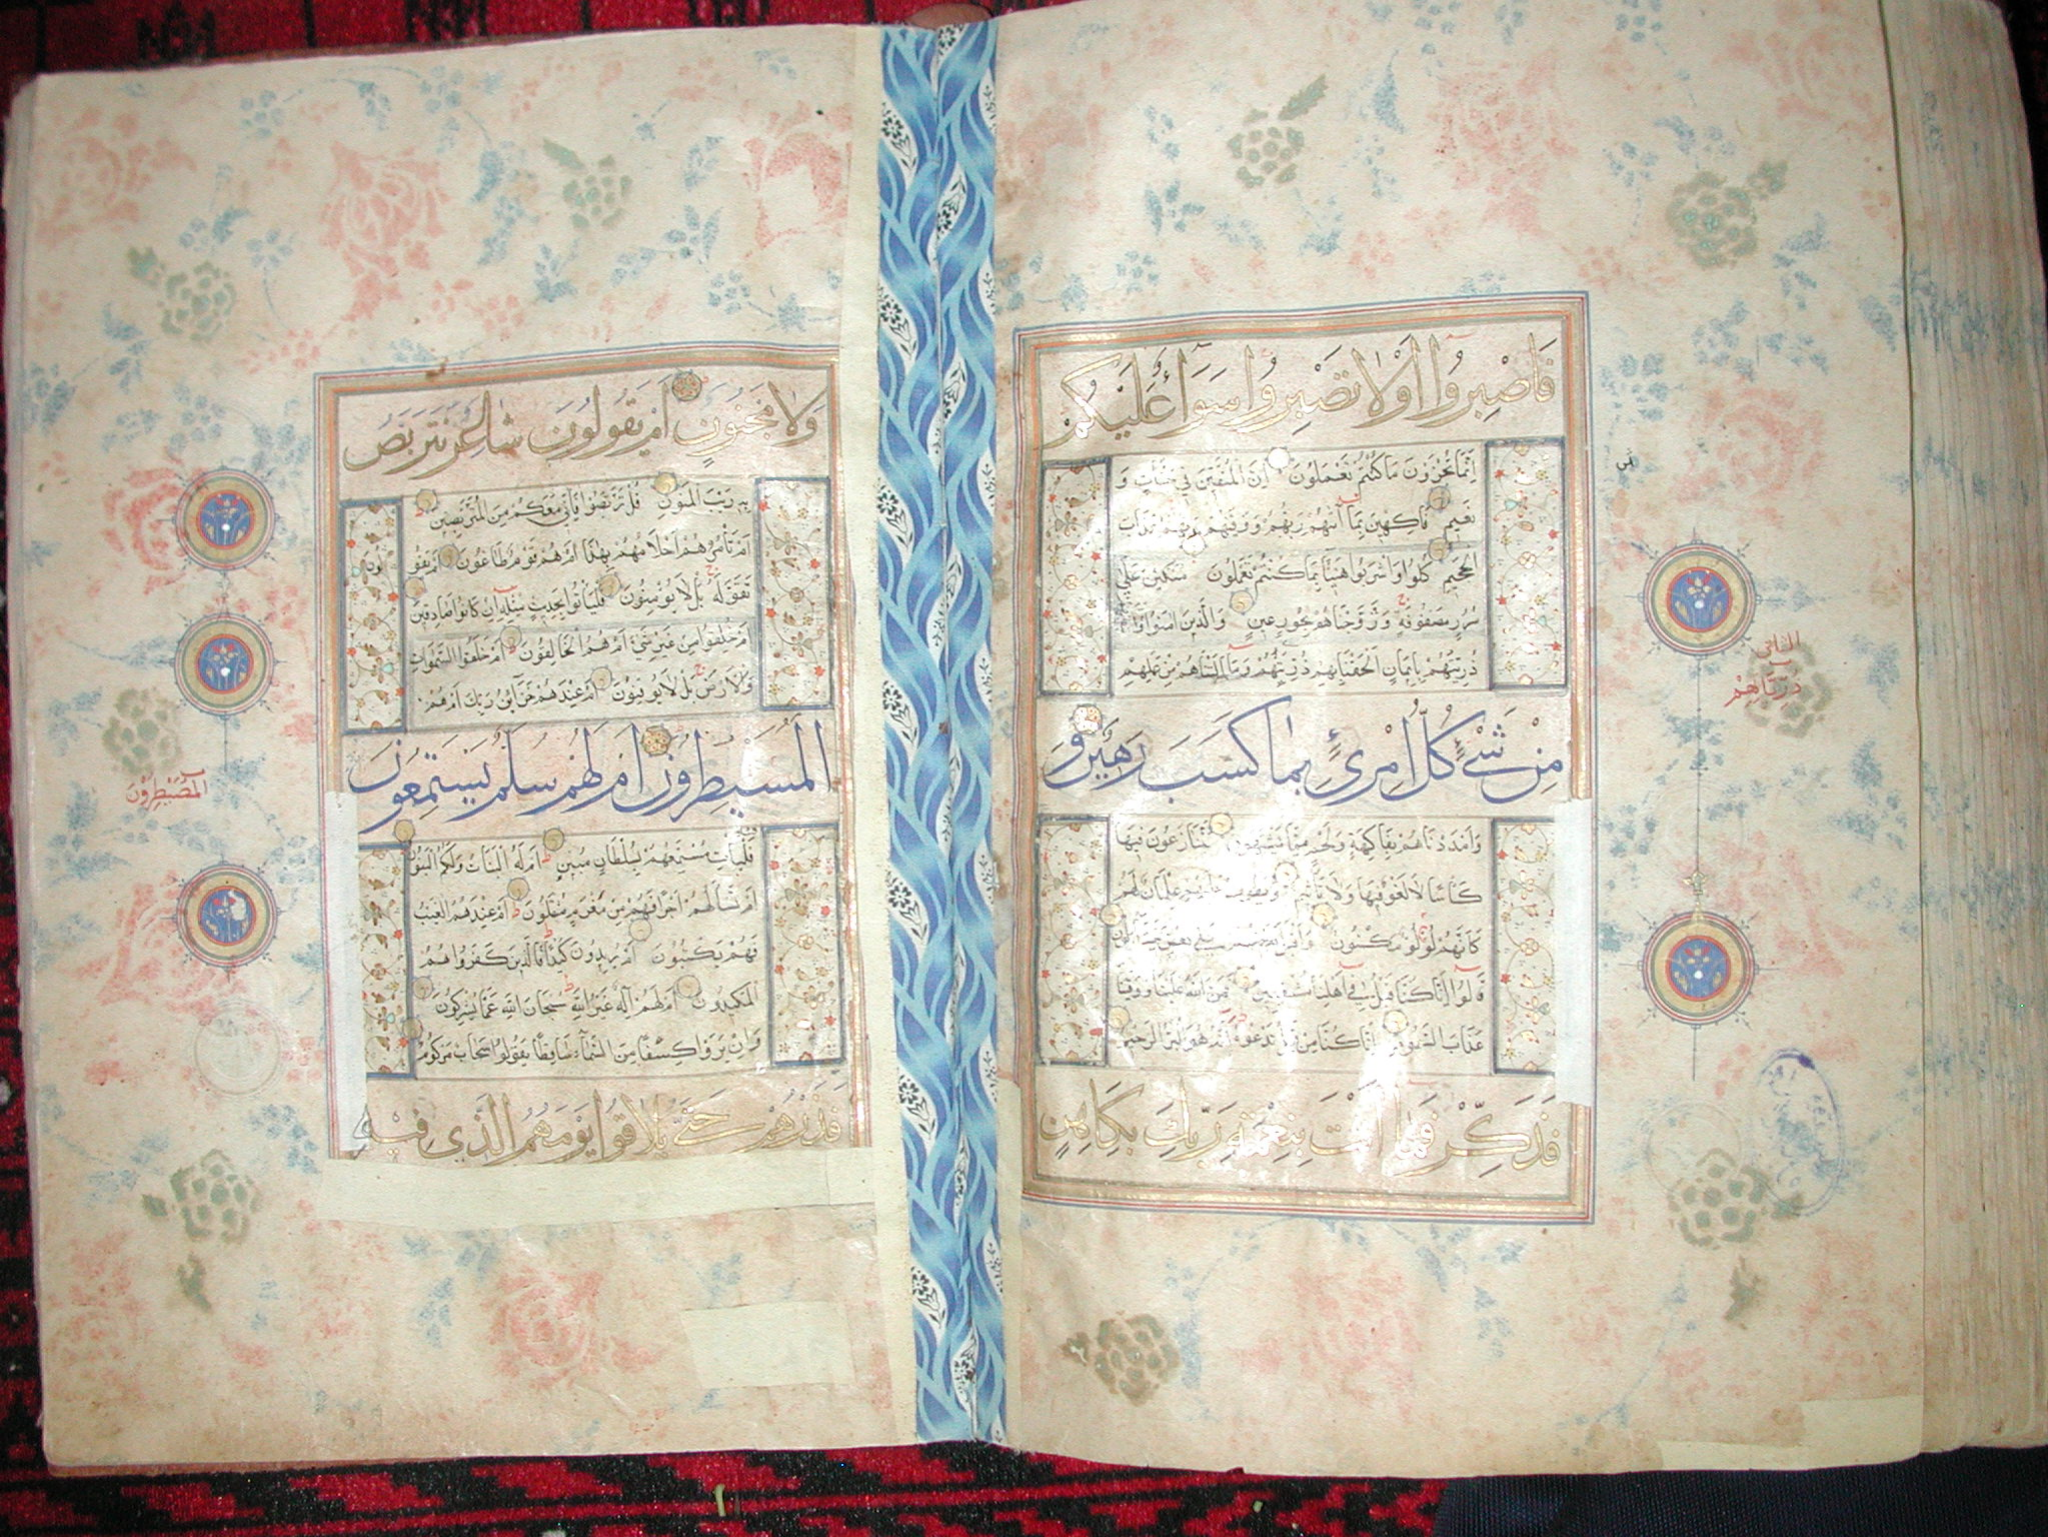 فَاصْبِرُوا أَوْ لَا تَصْبِرُوا سَوَاءٌ عَلَيْكُمْ
اِنَّمَا تُجْزَوْنَ مَا كُنْتُمْ تَعْمَلُونَ اِنَّ الْمُتَّقِينَ فِي جَنَّاتٍ وَ
نَعِيمٍ فَاكِهِينَ بِمَا اٰتٰيهُمْ رَبُّهُمْ وَوَقٰيهُمْ رَبُّهُمْ عَذَابَ
الْجَحِيمِ كُلُوا وَاشْرَبُوا هَنِيئًا بِمَا كُنْتُمْ تَعْمَلُونَ مُتَّكِئِينَ عَلٰى
سُرُرٍ مَصْفُوفَةٍ وَزَوَّجْنَاهُمْ بِحُورٍ عِينٍ وَالَّذِينَ اٰمَنُوا وَاتَّبَعَتْهُمْ
ذُرِّيَّتُهُمْ بِاِيمَانٍ اَلْحَقْنَا بِهِمْ ذُرِّيَّتَهُمْ وَمَا اَلَتْنَاهُمْ مِنْ عَمَلِهِمْ
مِنْ شَيْءٍ كُلُّ امْرِئٍ بِمَا كَسَبَ رَهِينٌ وَ
اَمْدَدْنَاهُمْ بِفَاكِهَةٍ وَلَحْمٍ مِمَّا يَشْتَهُونَ يَتَنَازَعُونَ فِيهَا
كَأْسًا لَا لَغْوٌ فِيهَا وَلَا تَأْثِيمٌ وَيَطُوفُ عَلَيْهِمْ غِلْمَانٌ لَهُمْ
كَاَنَّهُمْ لُؤْلُؤٌ مَكْنُونٌ وَاَقْبَلَ بَعْضُهُمْ عَلٰى بَعْضٍ يَتَسَاءَلُونَ
قَالُوا اِنَّا كُنَّا قَبْلُ فِي اَهْلِنَا مُشْفِقِينَ فَمَنَّ اللّٰهُ عَلَيْنَا وَوَقٰينَا
عَذَابَ السَّمُومِ اِنَّا كُنَّا مِنْ قَبْلُ نَدْعُوهُ اِنَّهُ هُوَ الْبَرُّ الرَّحِيمُ
فَذَكِّرْ فَمَا أَنْتَ بِنِعْمَةِ رَبِّكَ بِكَاهِنٍ
ذُرِّيَّاتِهِمْ
وَلَا مَجْنُونٍ اَمْ يَقُولُونَ شَاعِرٌ نَتَرَبَّصُ
بِهِ رَيْبَ الْمَنُونِ قُلْ تَرَبَّصُوا فَاِنِّي مَعَكُمْ مِنَ الْمُتَرَبِّصِينَ
اَمْ تَأْمُرُهُمْ اَحْلَامُهُمْ بِهٰذَا اَمْ هُمْ قَوْمٌ طَاغُونَ اَمْ يَقُولُونَ
تَقَوَّلَهُ بَلْ لَا يُؤْمِنُونَ فَلْيَأْتُوا بِحَدِيثٍ مِثْلِهِ اِنْ كَانُوا صَادِقِينَ
اَمْ خُلِقُوا مِنْ غَيْرِ شَيْءٍ اَمْ هُمُ الْخَالِقُونَ اَمْ خَلَقُوا السَّمٰوَاتِ
وَالْاَرْضَ بَلْ لَا يُوقِنُونَ اَمْ عِنْدَهُمْ خَزَائِنُ رَبِّكَ اَمْ هُمُ
الْمُسَيْطِرُونَ اَمْ لَهُمْ سُلَّمٌ يَسْتَمِعُونَ
فَلْيَأْتِ مُسْتَمِعُهُمْ بِسُلْطَانٍ مُبِينٍ اَمْ لَهُ الْبَنَاتُ وَلَكُمُ الْبَنُونَ
اَمْ تَسْأَلُهُمْ اَجْرًا فَهُمْ مِنْ مَغْرَمٍ مُثْقَلُونَ اَمْ عِنْدَهُمُ الْغَيْبُ
فَهُمْ يَكْتُبُونَ اَمْ يُرِيدُونَ كَيْدًا فَالَّذِينَ كَفَرُوا هُمُ
الْمَكِيدُونَ اَمْ لَهُمْ اِلٰهٌ غَيْرُ اللّٰهِ سُبْحَانَ اللّٰهِ عَمَّا يُشْرِكُونَ
وَاِنْ يَرَوْا كِسْفًا مِنَ السَّمَاءِ سَاقِطًا يَقُولُوا سَحَابٌ مَرْكُومٌ
فَذَرْهُمْ حَتّٰى يُلَاقُوا يَوْمَهُمُ الَّذِي فِيهِ
الْمُصَيْطِرُونَ